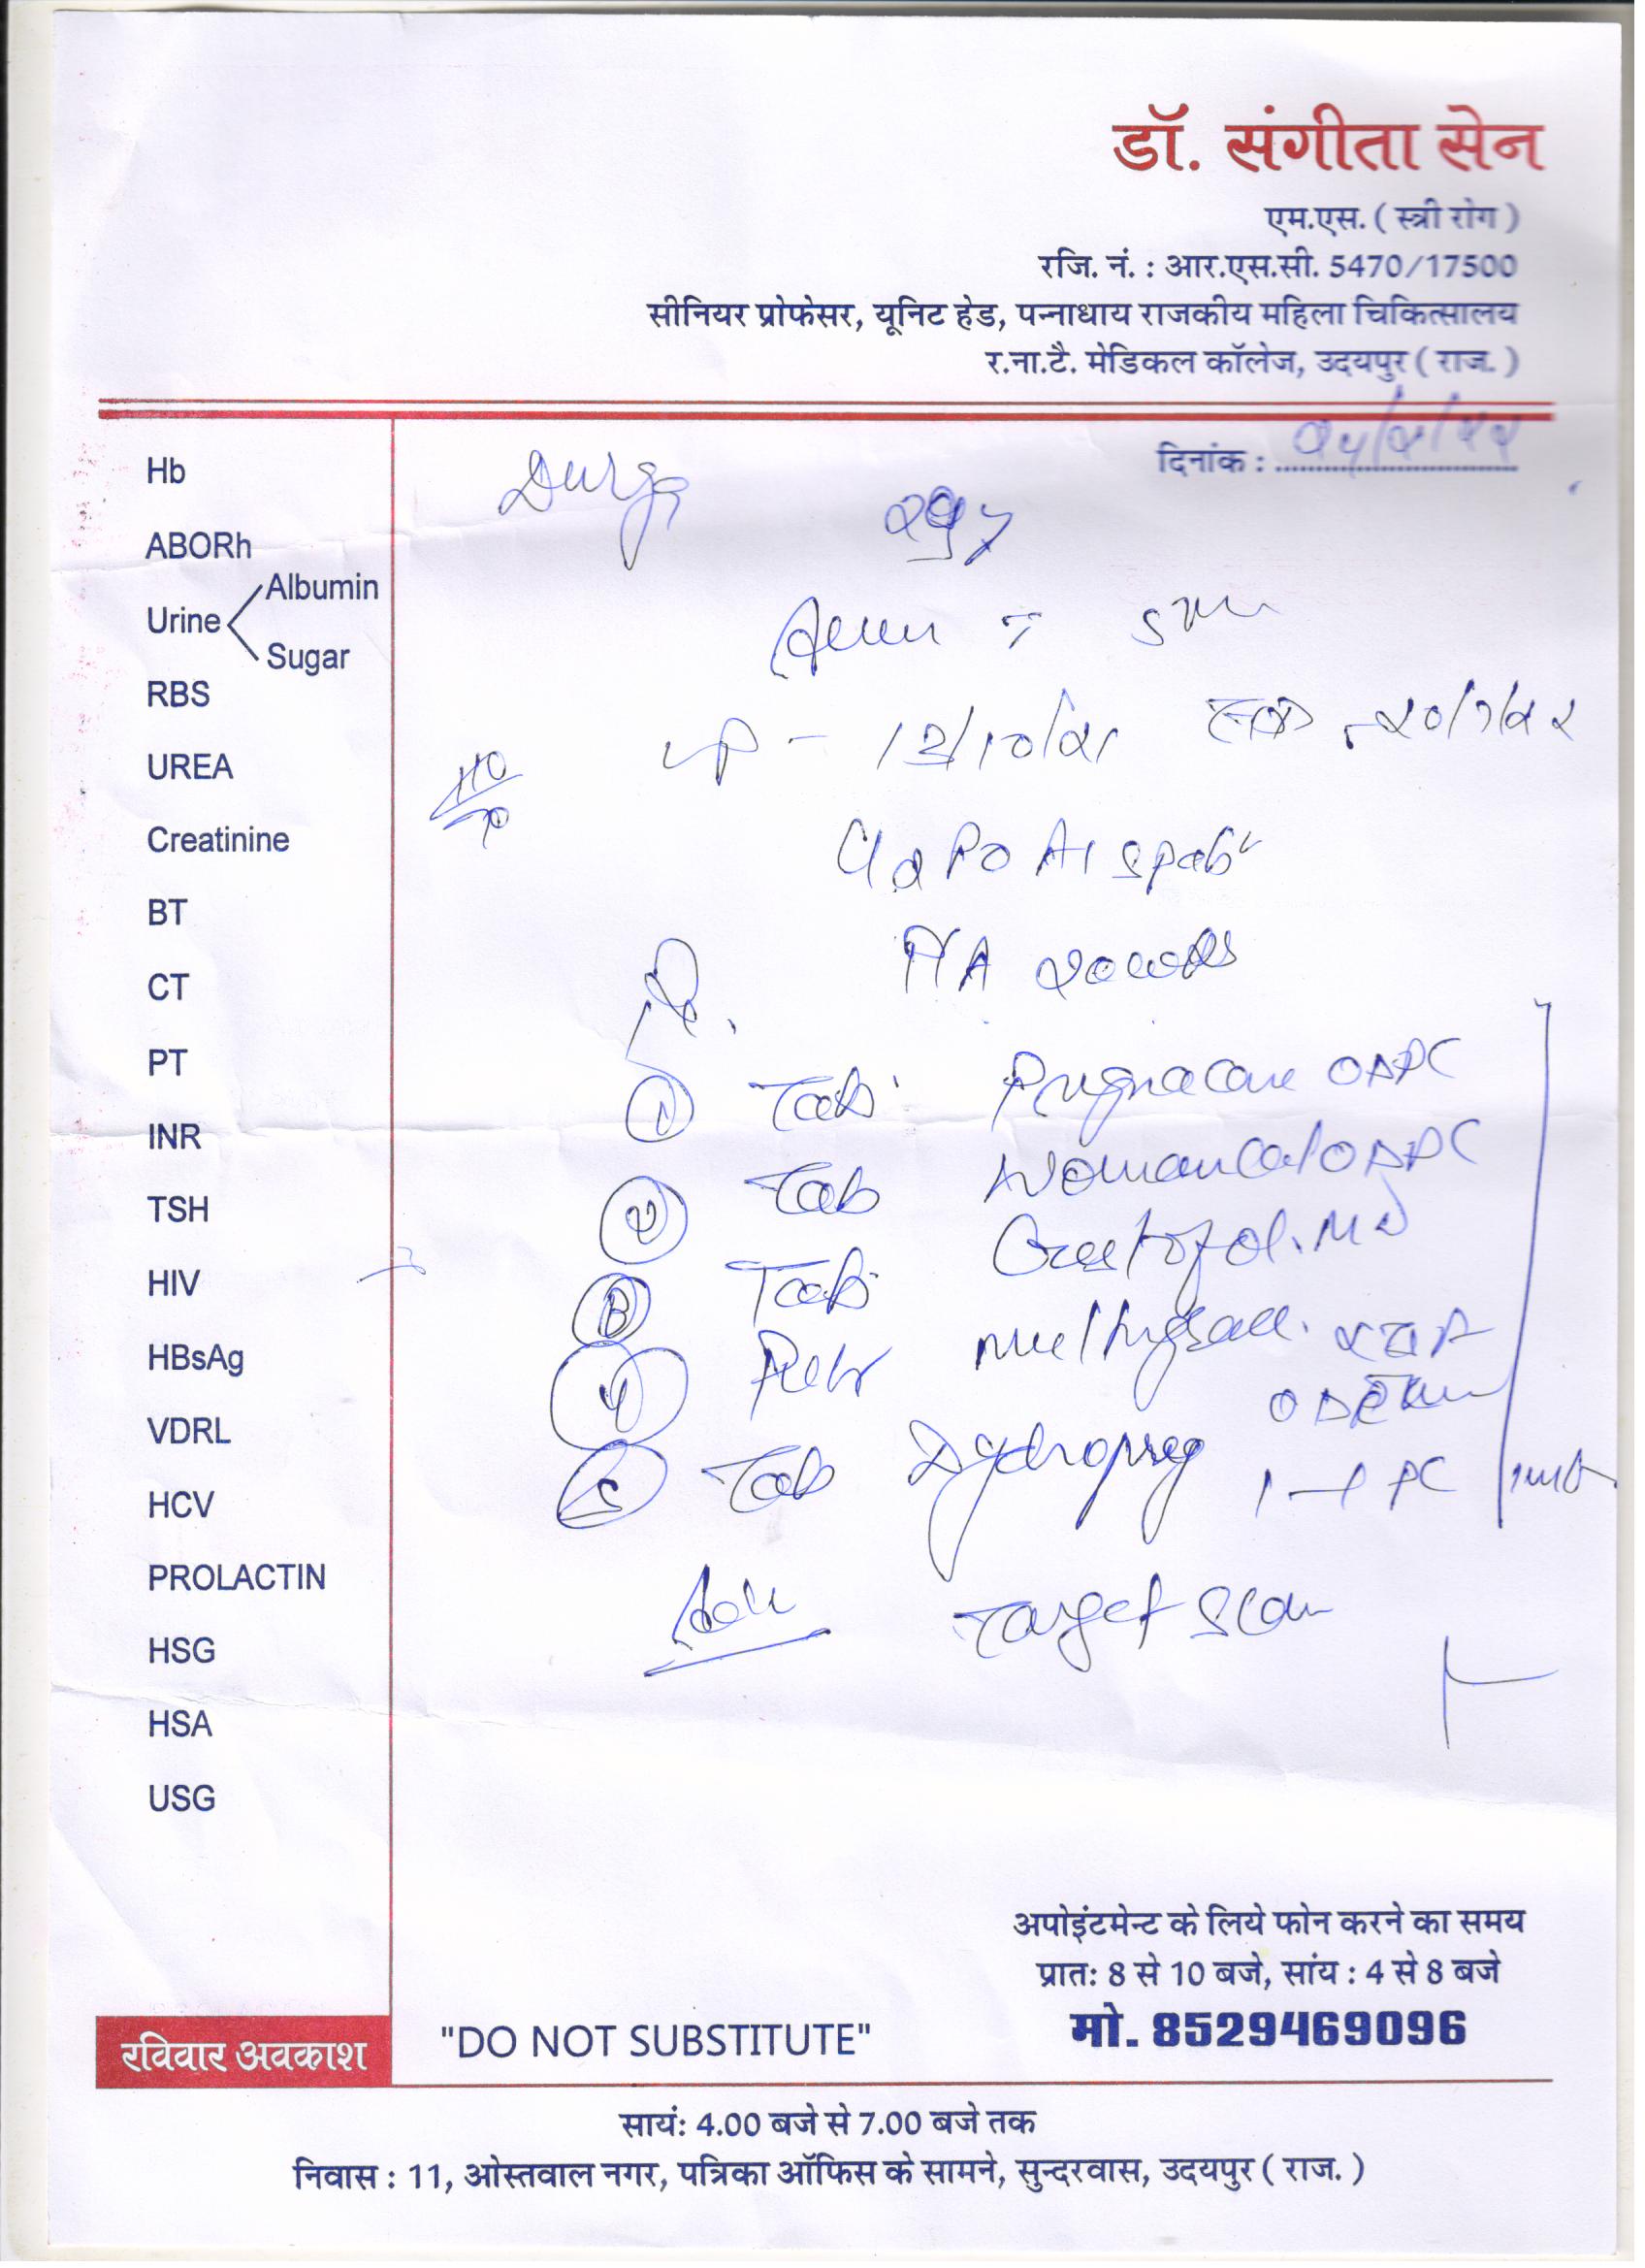 डॉ. संगीता सेन
एम.एस. ( स्त्री रोग )
रजि. नं. : आर.एस.सी. 5470/17500
सीनियर प्रोफेसर, यूनिट हेड, पन्नाधाय राजकीय महिला चिकित्सालय
र.ना.टै. मेडिकल कॉलेज, उदयपुर ( राज. )
दिनांक :
Durga
Hb
ABORh
Urine Albumin
Sugar
RBS
UREA
Creatinine
BT
CT
PT
INR
TSH
HIV
HBsAg
VDRL
HCV
PROLACTIN
HSG
HSA
USG
110/70
- 13/10/21 20/7/22
G2 P0 A1
P/A
1 Tab. Pregnacare OD PC
2 Tab Womancal OD PC
3 Tab.
4
OD
5 Tab Dydropreg 1-1 PC
Adv Target Scan
अपोइंटमेन्ट के लिये फोन करने का समय
प्रात: 8 से 10 बजे, सांय : 4 से 8 बजे
मो. 8529469096
रविवार अवकाश
"DO NOT SUBSTITUTE"
सायं: 4.00 बजे से 7.00 बजे तक
निवास : 11, ओस्तवाल नगर, पत्रिका ऑफिस के सामने, सुन्दरवास, उदयपुर ( राज. )